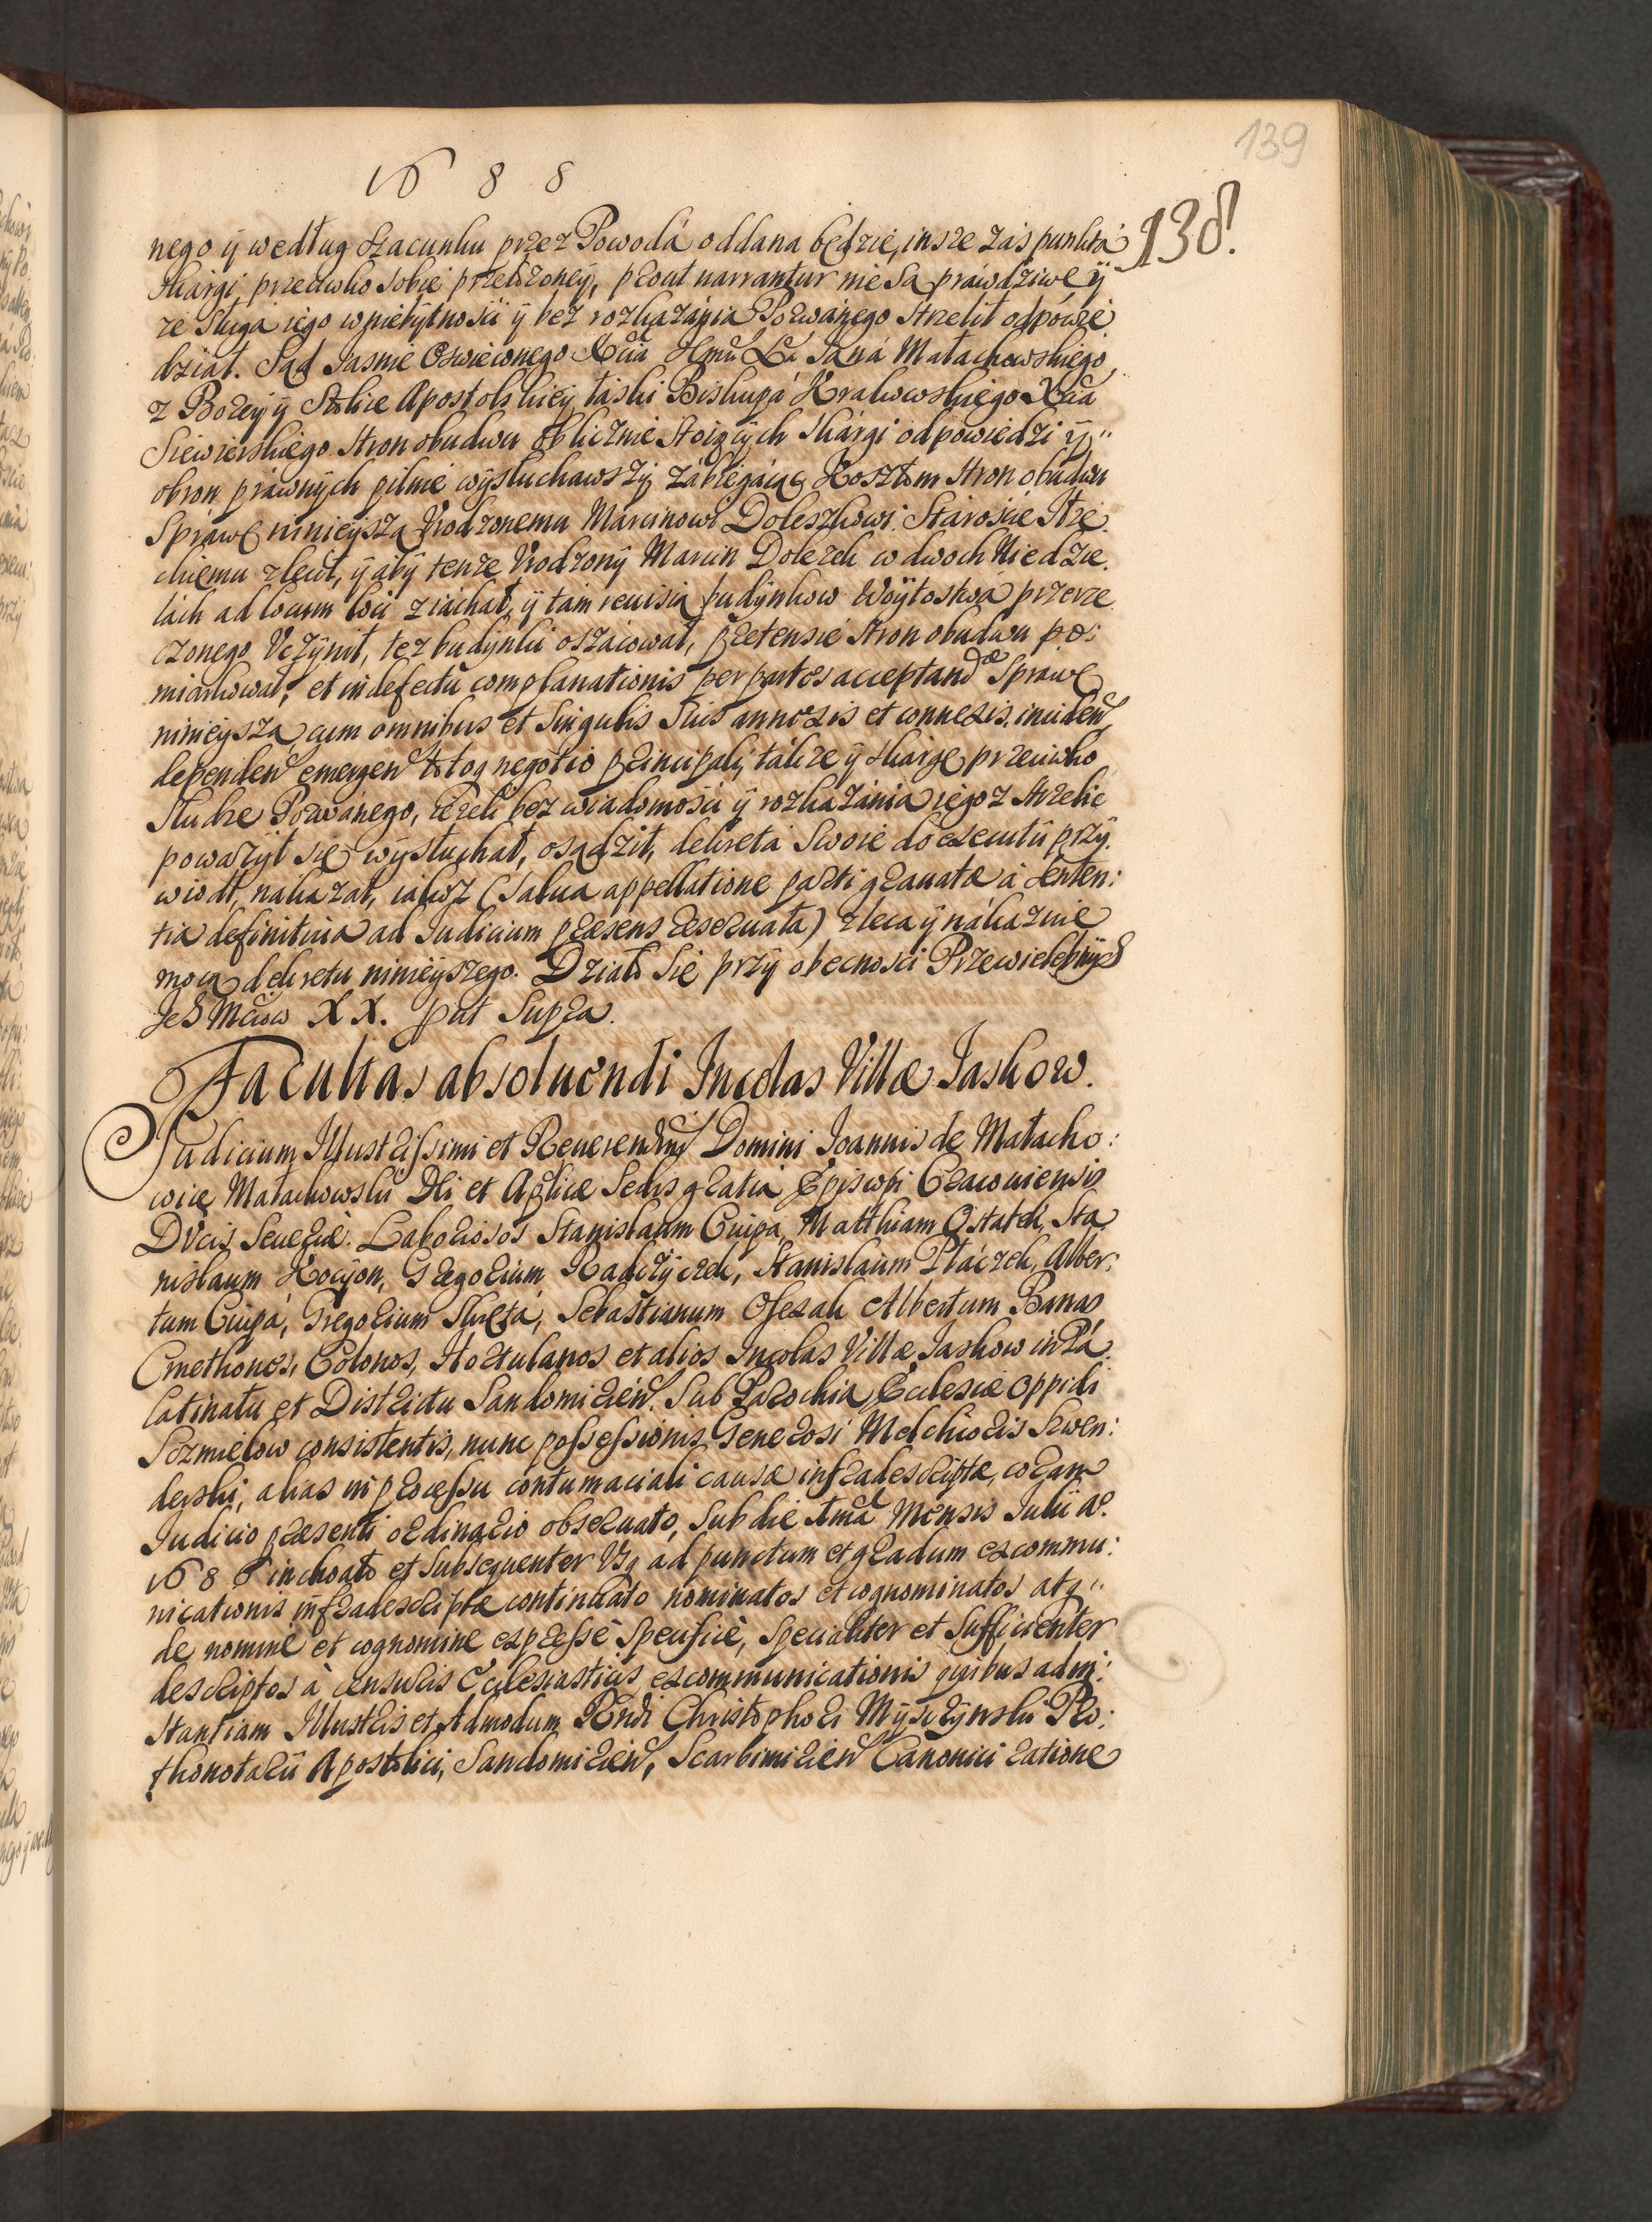 139
1688
138.
nego ÿ według szacunku przez Powodá oddana będzie, insze zaś punktá
skárgi przeciwko sobie przełożoneÿ, prout narrantur nie są práwdziwe ÿ
że sługa iego w niebÿtnosci ÿ bez rozkazánia Pozwánego strzelił odpowie
dział. Sąd Jasnie Oswieconego Jáná Małachowskiego,
z Bożeÿ ÿ Stolice Apostolskieÿ łaski Biskupá Krakowskiego Xcia
Siewierskiego stron obudwu oblicznie stoiących skárgi odpowiedzi ÿ
obron práwnÿch pilnie wÿsłuchawszÿ zábiegáiąc Kosztom stron obudwu
Spráwę ninieÿszą Vrodzonemu Marcinowi Doleszkowi Stárościе
ckiemu zlecił, ÿ abÿ tenże Vrodzonÿ Marcin Dolezek w dwoch Niedzie
lách ad locum loci ziáchał, ÿ tam reuisią budÿnkow Woÿtostwá przerze
czonego Vczÿnił, też budÿnki oszácował, praetensie stron obudwu po:
miárkował, et in defectu complanationis per partes acceptandae Spráwę
ninieÿszą cum omnibus et singulis suis annexis et connexis, inciden
dependen emergen totoq negotio principali, tákże ÿ skárgę przeciwko
słudze Pozwánego, ieżeli bez wiadomości ÿ rozkazánia iego z strzelić
powazÿł się wÿsłuchał, osądził, dekretá swoie do executii przÿ
wiodł, nakazał, iákosz (salua appellatione parti grauatae à senten:
tia definitiua ad Judicium praesens reseruata) zleca ÿ nákazuie
mocą dekretu ninieÿszego. Działo się przÿ obecności Przewielebnÿch
Jch Mciow XX. put supra.
Facultas absoluendi Incolas Villae Jaskow.
Judicium Illustrissimi et Reuerendssmi Domini Joannis de Małacho:
wice Małachowski Dei et Aplicae Sedis gratia Episcopi Cracouiensis
Ducis Seueriae. Laboriosos Stanislaum Ciupa, Matthiam Ostatek, Sta
nislaum Kocÿon, Gregorium Radczÿczek, Stanislaum Ptáczek, Alber:
tum Ciupá, Gregorium Skrętá, Sebastianum Albertum Banas
Cmethones, Colonos, Hortulanos et alios Incolas Villae Jaskow in Pa
latinatu et Districtu Sandomirien. Sub Parochia Ecclesiae Oppidi
consistentis, nunc possessionis Generosi Melchioris Szwen:
derski, alias in processu contumaciali causae infradescriptae, coram
Judicio praesenti ordinario obseruato, sub die Ima Mensis Julii A.
1686 inchoato et subsequenter Vsq ad punctum et gradum excommu:
nicationis infradescriptae continuato nominatos et cognominatos atq
de nomine et cognomine expresse specifice, specialiter et sufficienter
descriptos à censuris Ecclesiasticis excommunicationis quibus ad in:
stantiam Illustris et Admodum Rndi Christophori Mÿsczÿnski Pro:
thonotarii Apostolici, Sandomirien, Scarbimirien Canonici ratione